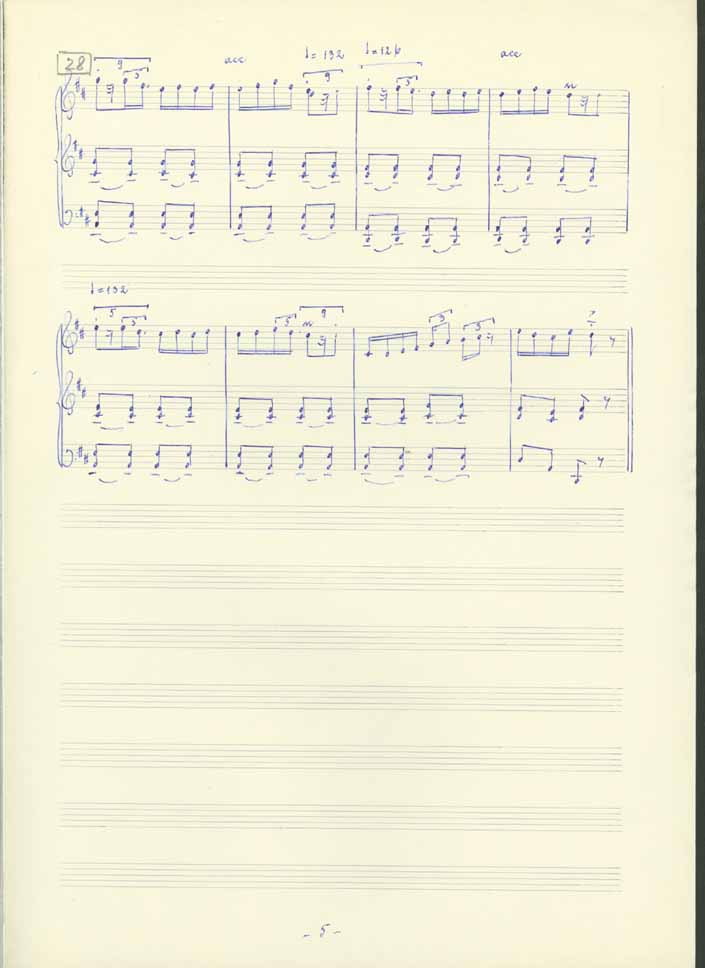 28 9 3 acc ♩= 132 9 ♩=126 3 acc
♩=132
5 3 3 9 3 3
- 5 -